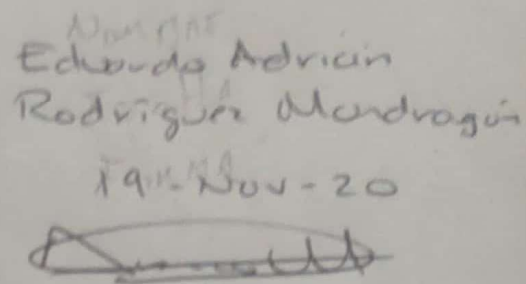 Eduardo Adrián
Rodríguez Mondragón
19-Nov-20